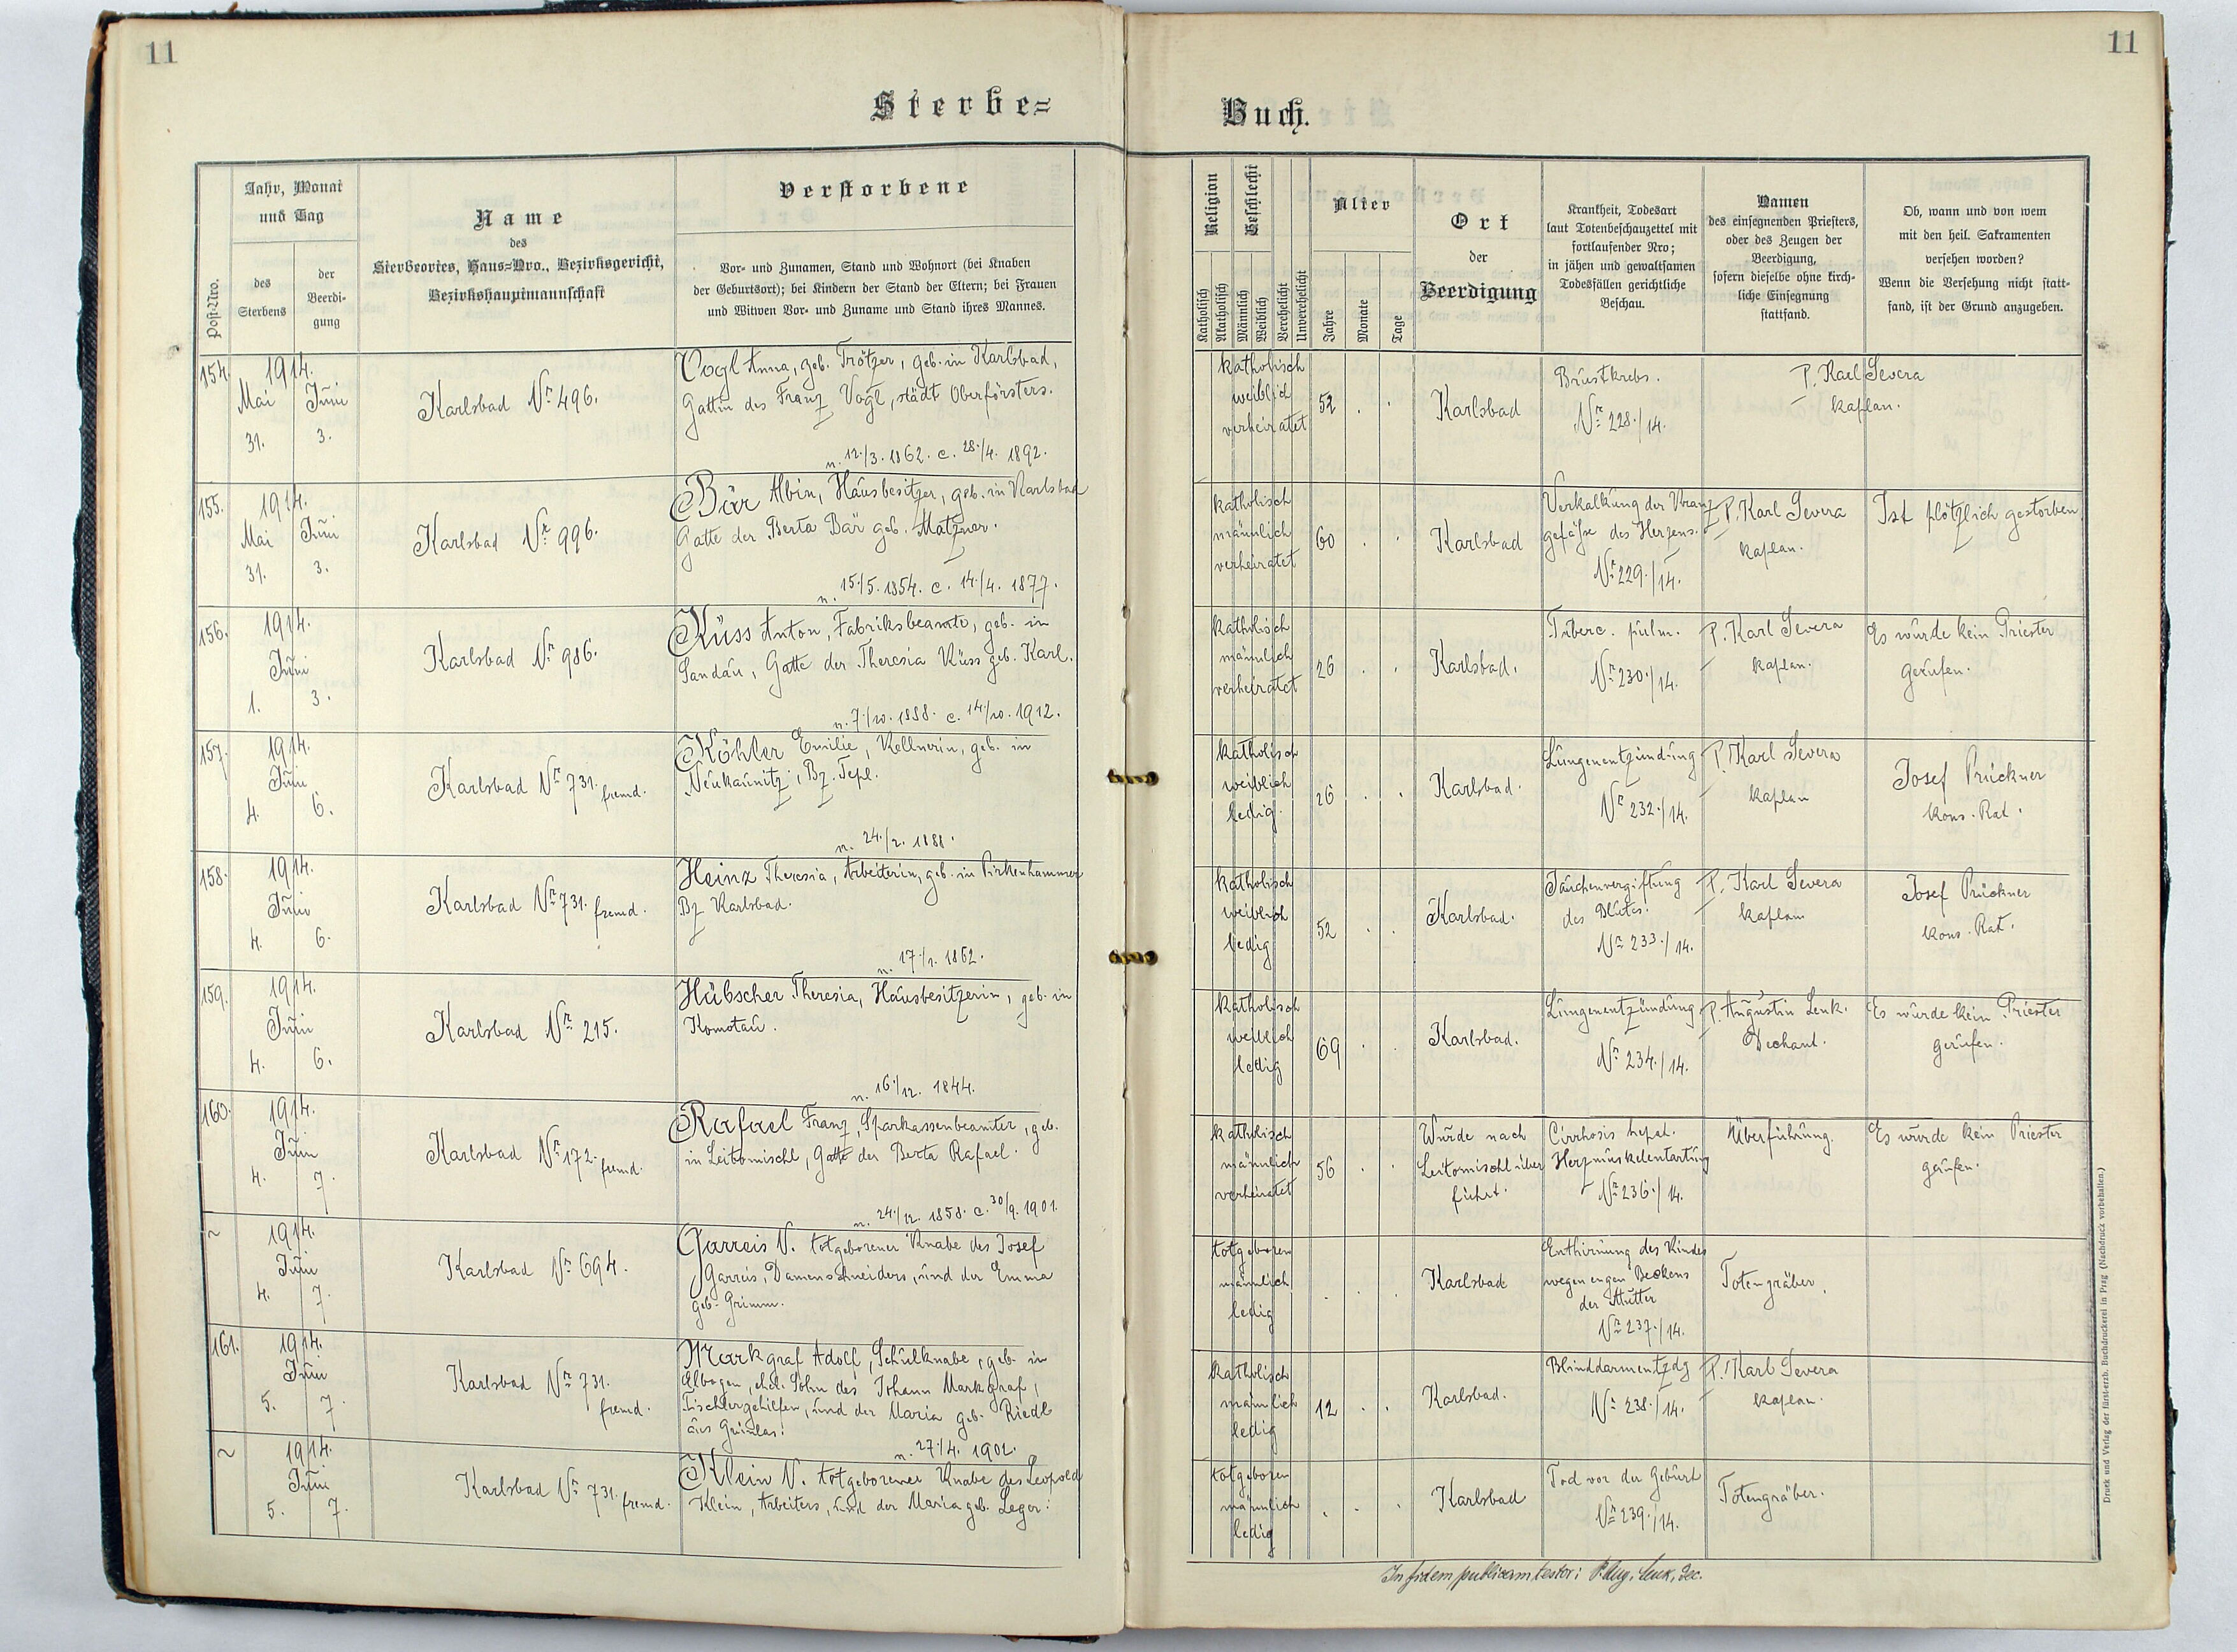 11
11
Sterbe=
Buch.
Post-Nro.
Jahr, Monat
und Tag
des
Sterbens
der
Beerdi-
gung
Name
des
Sterbeortes, Haus=Nro., Bezirksgericht,
Bezirkshauptmannschaft
Verstorbene
Vor- und Zunamen, Stand und Wohnort (bei Knaben
der Geburtsort); bei Kindern der Stand der Eltern; bei Frauen
und Witwen Vor- und Zuname und Stand ihres Mannes.
Religion
Katholisch
Akatholisch
Geschlecht
Männlich
Weiblich
Verehelicht
Unverehelicht
Alter
Jahre
Monate
Tage
Ort
der
Beerdigung
Krankheit, Todesart
laut Totenbeschauzettel mit
fortlaufender Nro;
in jähen und gewaltsamen
Todesfällen gerichtliche
Beschau.
Namen
des einsegnenden Priesters,
oder des Zeugen der
Beerdigung,
sofern dieselbe ohne kirch-
liche Einsegnung
stattfand.
Ob, wann und von wem
mit den heil. Sakramenten
versehen worden?
Wenn die Versehung nicht statt-
fand, ist der Grund anzugeben.
154.
1914.
Mai Juni
31. 3.
Karlsbad Nr 496.
Vogl Anna, geb. Trötzer, geb. in Karlsbad,
Gattin des Franz Vogl, städt Oberförsters.
n. 12./3. 1862. c. 28./4. 1892.
katholisch
weiblich
verheiratet
52 . .
Karlsbad
Brustkrebs.
Nr 228./14.
P. Karl Severa
kaplan.
155.
1914.
Mai Juni
31. 3.
Karlsbad Nr 996.
Bär Albin, Hausbesitzer, geb. in Karlsbad
Gatte der Berta Bär geb. Matzner.
n. 15./5. 1854. c. 14./4. 1877.
katholisch
männlich
verheiratet
60 . .
Karlsbad
Verkalkung der Kranz
gefäße des Herzens.
Nr 229./14.
P. Karl Severa
kaplan.
Ist plötzlich gestorben
156.
1914.
Juni
1. 3.
Karlsbad Nr 986.
Küss Anton, Fabriksbeamte, geb. in
Sandau, Gatte der Theresia Küss geb. Karl.
n. 7./10. 1888. c. 14./10. 1912.
katholisch
männlich
verheiratet
26 . .
Karlsbad.
Tuberc. pulm.
Nr 230./14.
P. Karl Severa
kaplan.
Es wurde kein Priester
gerufen.
157.
1914.
Juni
4. 6.
Karlsbad Nr 731. fremd.
Köhler Emilie, Kellnerin, geb. in
Neukaunitz, Bz. Tepl.
n. 24./2. 1888.
katholisch
weiblich
ledig.
26 . .
Karlsbad.
Lungenentzündung
Nr 232./14.
P. Karl Severa
kaplan
Josef Prückner
kons. Rat.
158.
1914.
Juni
4. 6.
Karlsbad Nr 731. fremd.
Heinz Theresia, Arbeiterin, geb. in Pirkenhammer
Bz Karlsbad.
n. 17./1. 1862.
katholisch
weiblich
ledig
52 . .
Karlsbad.
Jauchenvergiftung
des Blutes.
Nr 233./14.
P. Karl Severa
kaplan
Josef Prückner
kons. Rat.
159.
1914.
Juni
4. 6.
Karlsbad Nr 215.
Hübscher Theresia, Hausbesitzerin, geb. in
Komotau.
n. 16./12. 1844.
katholisch
weiblich
ledig
69 . .
Karlsbad.
Lungenentzündung
Nr 234./14.
P. Augustin Lenk.
Dechant.
Es wurde kein Priester
gerufen.
160.
1914.
Juni
4. 7.
Karlsbad Nr 172. fremd.
Rafael Franz, Sparkassenbeamter, geb.
in Leitomischl, Gatte der Berta Rafael.
n. 24./12. 1858. c. 30/9. 1901.
katholisch
männlich
verheiratet
56 . .
Wurde nach
Leitomischl über
führt.
Cirrhosis hepat.
Herzmuskelentartung
Nr 236./14.
Überführung.
Es wurde kein Priester
gerufen.
~
1914.
Juni
4. 7.
Karlsbad Nr 694.
Garreis N. totgeborener Knabe des Josef
Garreis, Damenschneiders, und der Emma
geb. Grimm.
totgeboren
männlich
ledig
. . .
Karlsbad
Enthirnung des Kindes
wegen engen Beckens
der Mutter
Nr 237./14.
Totengräber.
161.
1914.
Juni
5. 7.
Karlsbad Nr 731.
fremd.
Markgraf Adolf, Schulknabe, geb. in
Elbogen, ehel. Sohn des Johann Markgraf,
Tischlergehilfen, und der Maria geb. Riedl
aus Grünlas.
n. 27./4. 1902.
katholisch
männlich
ledig
12 . .
Karlsbad.
Blinddarmentzdg
Nr 238./14.
P. Karl Severa
kaplan.
~
1914.
Juni
5. 7.
Karlsbad Nr 731. fremd.
Klein N. totgeborener Knabe des Leopold
Klein, Arbeiters, und der Maria geb. Leger.
totgeboren
männlich
ledig
. . .
Karlsbad
Tod vor der Geburt
Nr 239./14.
Totengräber.
In fidem publicam testor: P. Aug. Lenk, Dec.
Druck und Verlag der fürst-erzb. Buchdruckerei in Prag (Nachdruck vorbehalten.)